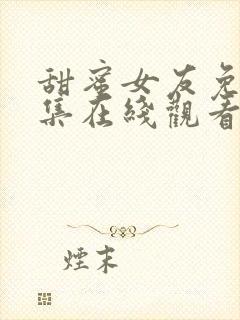 甜蜜女友免
集在綫觀看
煙末